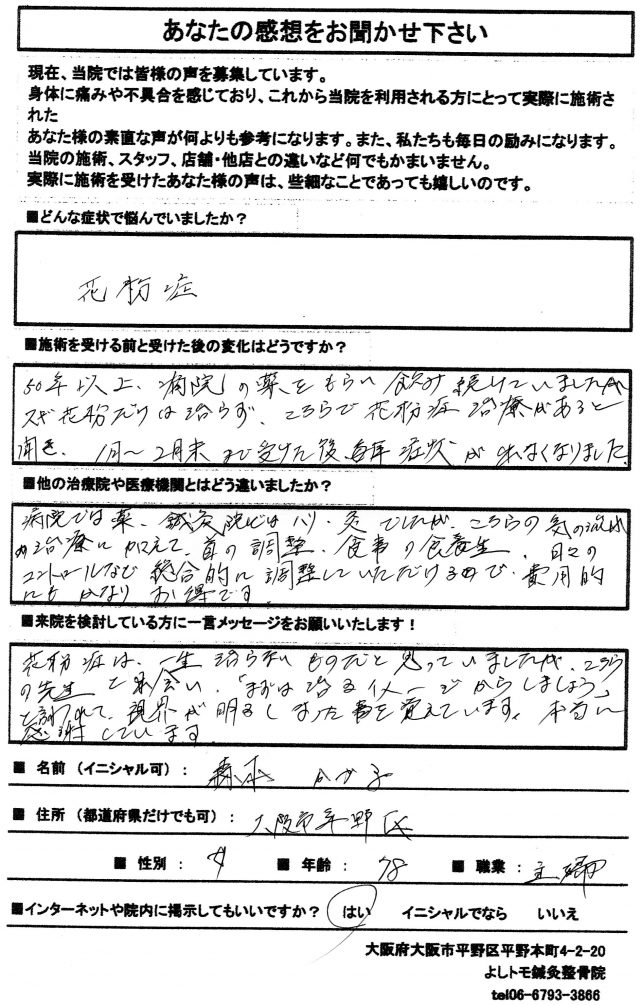 あなたの感想をお聞かせ下さい
現在、当院では皆様の声を募集しています。
身体に痛みや不具合を感じており、これから当院を利用される方にとって実際に施術さ
れた
あなた様の素直な声が何よりも参考になります。また、私たちも毎日の励みになります。
当院の施術、スタッフ、店舗・他店との違いなど何でもかまいません。
実際に施術を受けたあなた様の声は、些細なことであっても嬉しいのです。
■どんな症状で悩んでいましたか？
花粉症
■施術を受ける前と受けた後の変化はどうですか？
50年以上、病院の薬をもらい飲み続けていましたが
スギ花粉だけは治らず、こちらで花粉症治療があると
聞き、1月〜2月末まで受けた後、毎年症状が出なくなりました
■他の治療院や医療機関とはどう違いましたか？
病院では薬、鍼灸院ではハリ・灸でしたが、こちらの気の流れ
の治療に加えて、首の調整、食事の食養生、日々の
コントロールなど総合的に調整していただけるので、費用的
にもかなりお得です。
■来院を検討している方に一言メッセージをお願いいたします！
花粉症は、一生治らないものだと思っていましたが、こちら
の先生と出会い、「まずは治るイメージからしましょう」
と言われて、視界が明るくなった事を覚えています。本当に
感謝しています。
■ 名前（イニシャル可）： 森本 子
■ 住所（都道府県だけでも可）： 大阪市平野区
■ 性別： 女 ■ 年齢： 78 ■ 職業： 主婦
■インターネットや院内に掲示してもいいですか？ はい イニシャルでなら いいえ
大阪府大阪市平野区平野本町4-2-20
よしトモ鍼灸整骨院
tel06-6793-3866